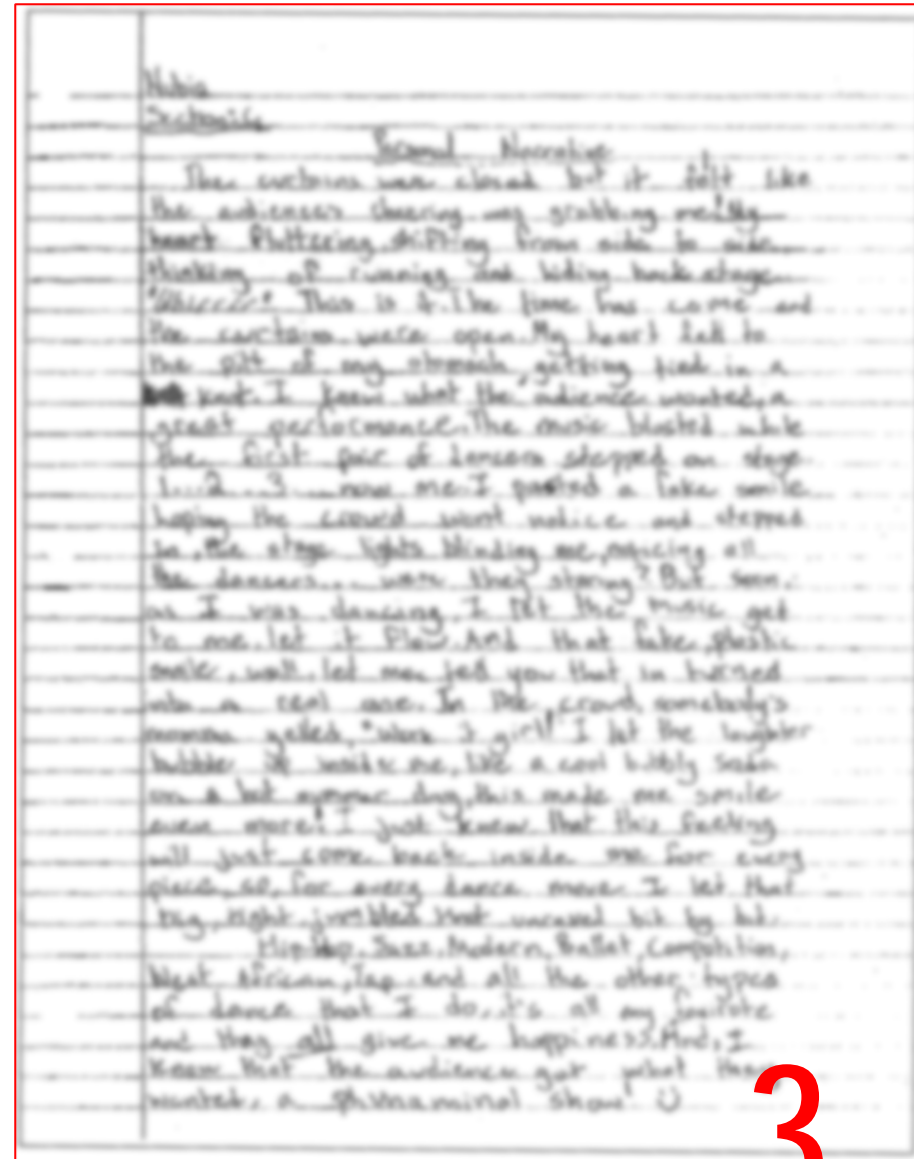 Nubia
Personal Narrative
The curtains was closed but it felt like
the audiences cheering was grabbing me! My
heart fluttering, shifting from side to side,
thinking of running and hiding back stage
This is it. The time has come and
the curtains were open. My heart fell to
the pitt of my stomach, getting tied in a
knot. I knew what the audience wanted, a
great performance. The music blasted while
the first pair of dancers stepped on stage
1...2...3.... now me. I pasted a fake smile
hoping the crowd wont notice and stepped
in, the stage lights blinding me, noticing all
the dancers... were they staring? But soon
as I was dancing, I let the music get
to me, let it flow. And that fake, plastic
smile, well, let me tell you that in turned
into a real one. In the crowd, somebody's
momma yelled, "Work it girl!" I let the laughter
bubble up inside me, like a cool bubbly soda
on a hot summer day, this made me smile
even more! I just knew that this feeling
will just come back inside me for every
piece, so, for every dance move I let that
big, tight, jumbled knot unravel bit by bit.
Hip Hop, Jazz, Modern, Ballet, Compitition,
West African, Tap and all the other types
of dance that I do, it's all my
and they all give me happiness. And, I
knew that the audience got what they
wanted, a phinaminal show
3